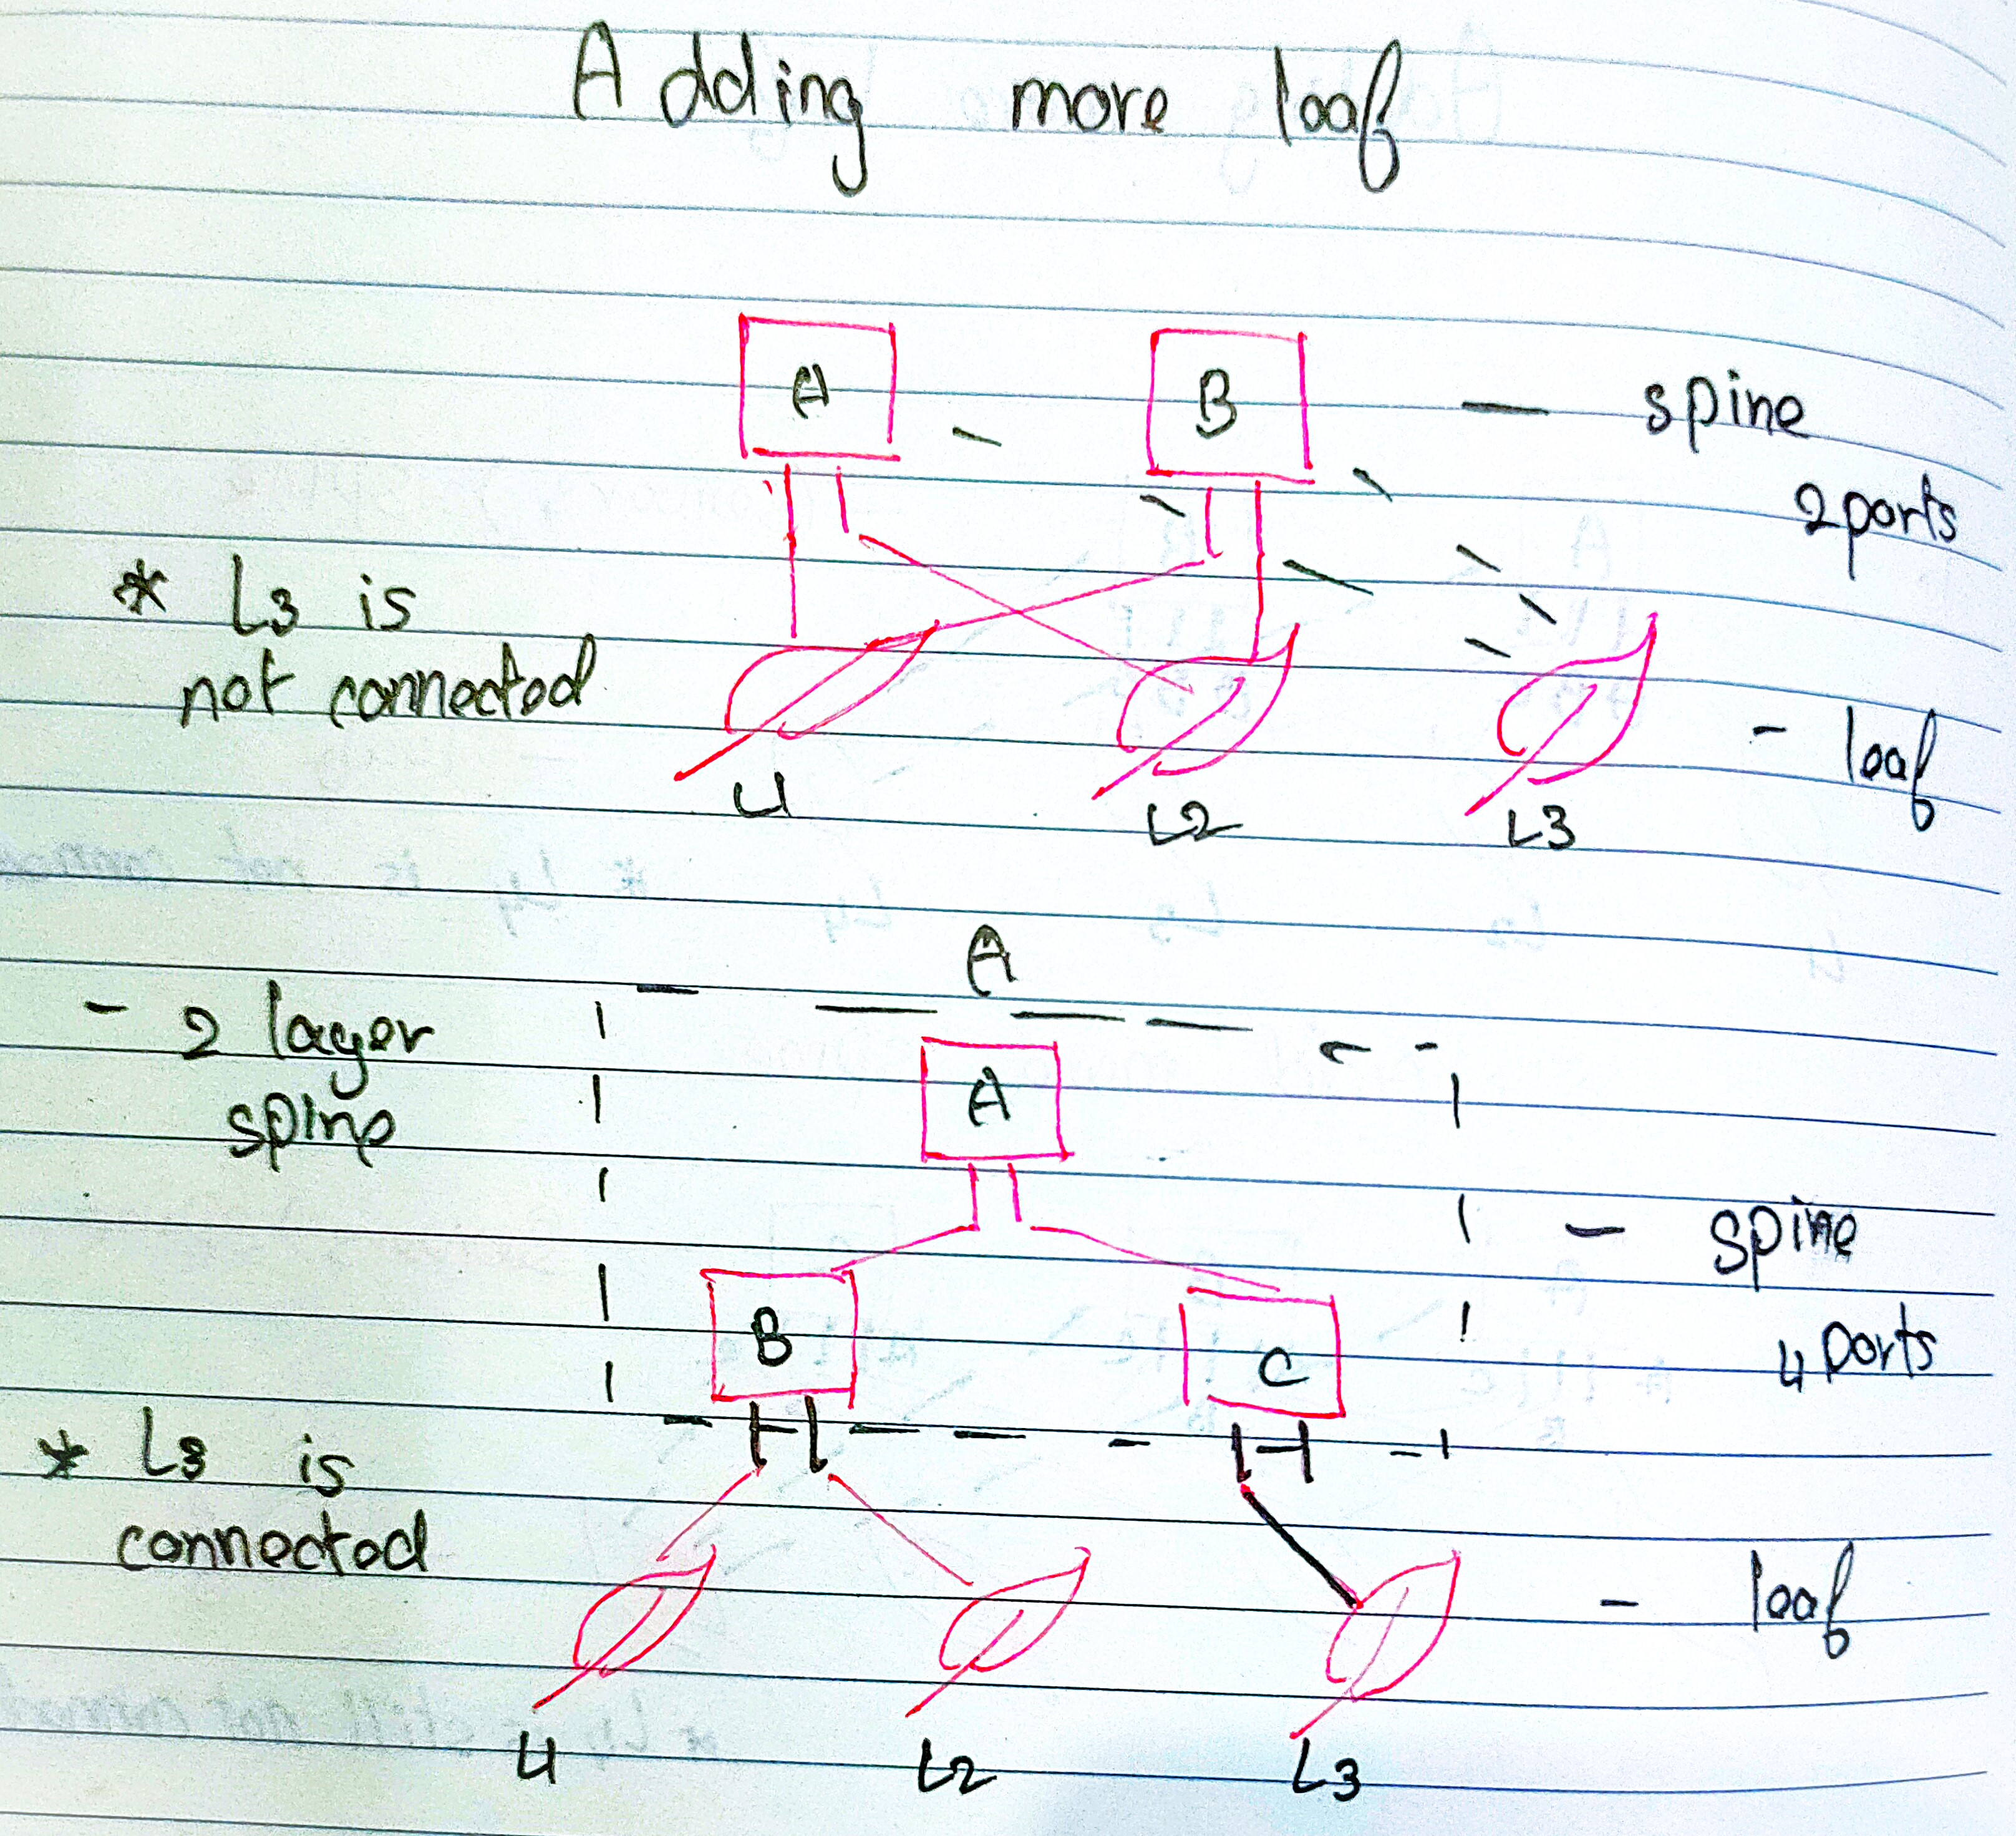 Adding more leaf
A B - spine
2 ports
* L3 is
not connected
- leaf
L1 L2 L3
A
- 2 layer
spine
A
- spine
B C
4 ports
* L3 is
connected
- leaf
L1 L2 L3